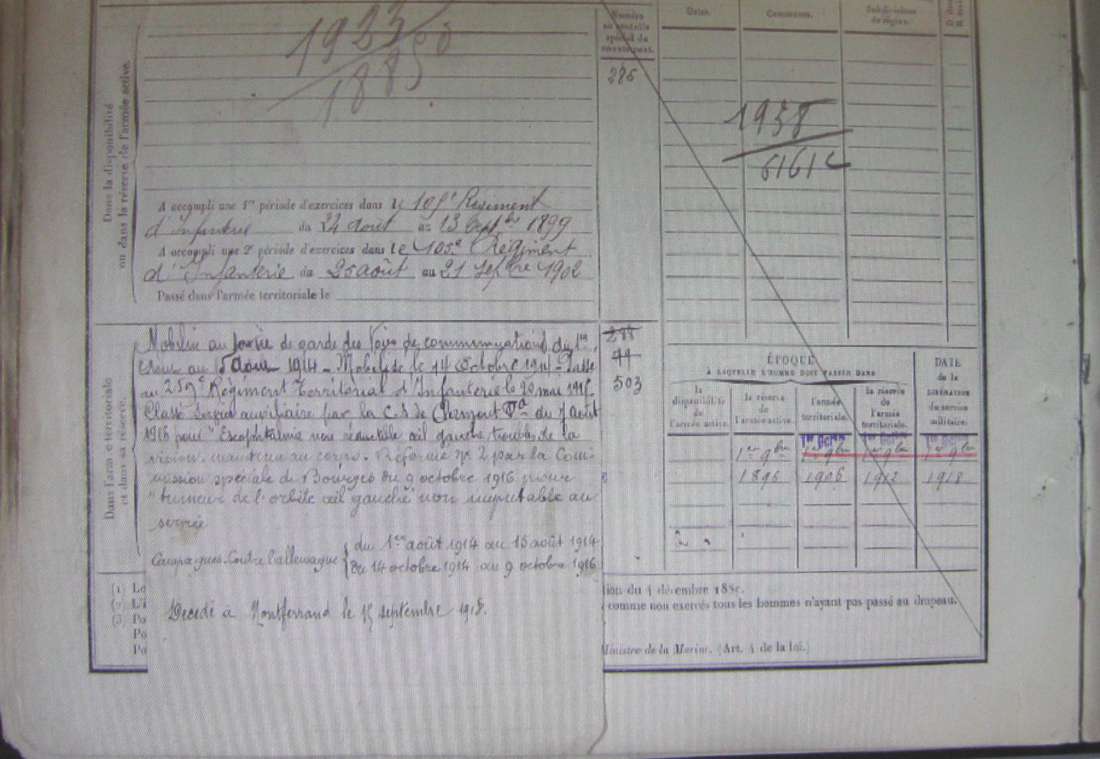 Dans la disponibilité
ou dans la réserve de l'armée active.
1923
1885
A accompli une 1re période d'exercices dans le 105e Régiment
d'infanterie du 24 août au 13 septbre 1899
A accompli une 2e période d'exercices dans le 105e Régiment
d'Infanterie du 25 août au 21 septbre 1902
Passé dans l'armée territoriale le
Dans l'armée territoriale
et dans sa réserve.
Mobilisé au service de garde des Voies de communications du 1er
août au 15 août 1914 - Mobilisé le 14 Octobre 1914 - Passé
au Régiment Territorial d'Infanterie le 20 mai
Classé Service auxiliaire par la C.S de Clermont Fd du 7 août
1916 pour "Exophtalmie non réductible œil gauche, troubles de la
vision, maintenu au corps. Réformé No 2 par la Com
mission spéciale de Bourges du 9 octobre 1916 pour
"tumeur de l'orbite œil gauche" non imputable au
service
Campagnes Contre l'allemagne
du 1er août 1914 au 15 août 1914
du 14 octobre 1914 au 9 octobre 1916
Décédé à Montferrand le 15 septembre 1918.
Numéro
au contrôle
spécial du
recrutement.
286
288
44
503
Dates.
Communes.
Subdivisions
de région.
1938
6161
ÉPOQUE
À LAQUELLE L'HOMME DOIT PASSER DANS
la
disponibilité
de
l'armée active.
la réserve
de
l'armée active.
l'armée
territoriale.
la réserve
de
l'armée
territoriale.
DATE
de la
libération
du service
militaire.
1er 9bre 1er Octbre 1er 9bre 1er 9bre
1896 1906 1912 1918
(1) Le
(2) L'i
(3) Po
Po
Po
tion du 4 décembre 188
comme non exercés tous les hommes n'ayant pas passé au drapeau.
Ministre de la Marine. (Art. 4 de la loi.)